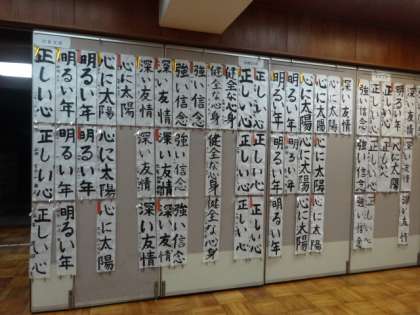 正しい心
明るい年
明るい年
心に太陽
心に太陽
深い友情
深い友情
強い信念
強い信念
健全な心身
健全な心身
正しい心
正しい心
明るい年
明るい年
心に太陽
心に太陽
深い友情
強い信念
正しい心
正しい心
明るい年
正しい心
明るい年
明るい年
心に太陽
深い友情
深い友情
強い信念
健全な心身
正しい心
正しい心
明るい年
明るい年
心に太陽
心に太陽
強い信念
正しい心
明るい年
心に太陽
正しい心
明るい年
心に太陽
深い友情
深い友情
強い信念
健全な心身
正しい心
正しい心
明るい年
心に太陽
心に太陽